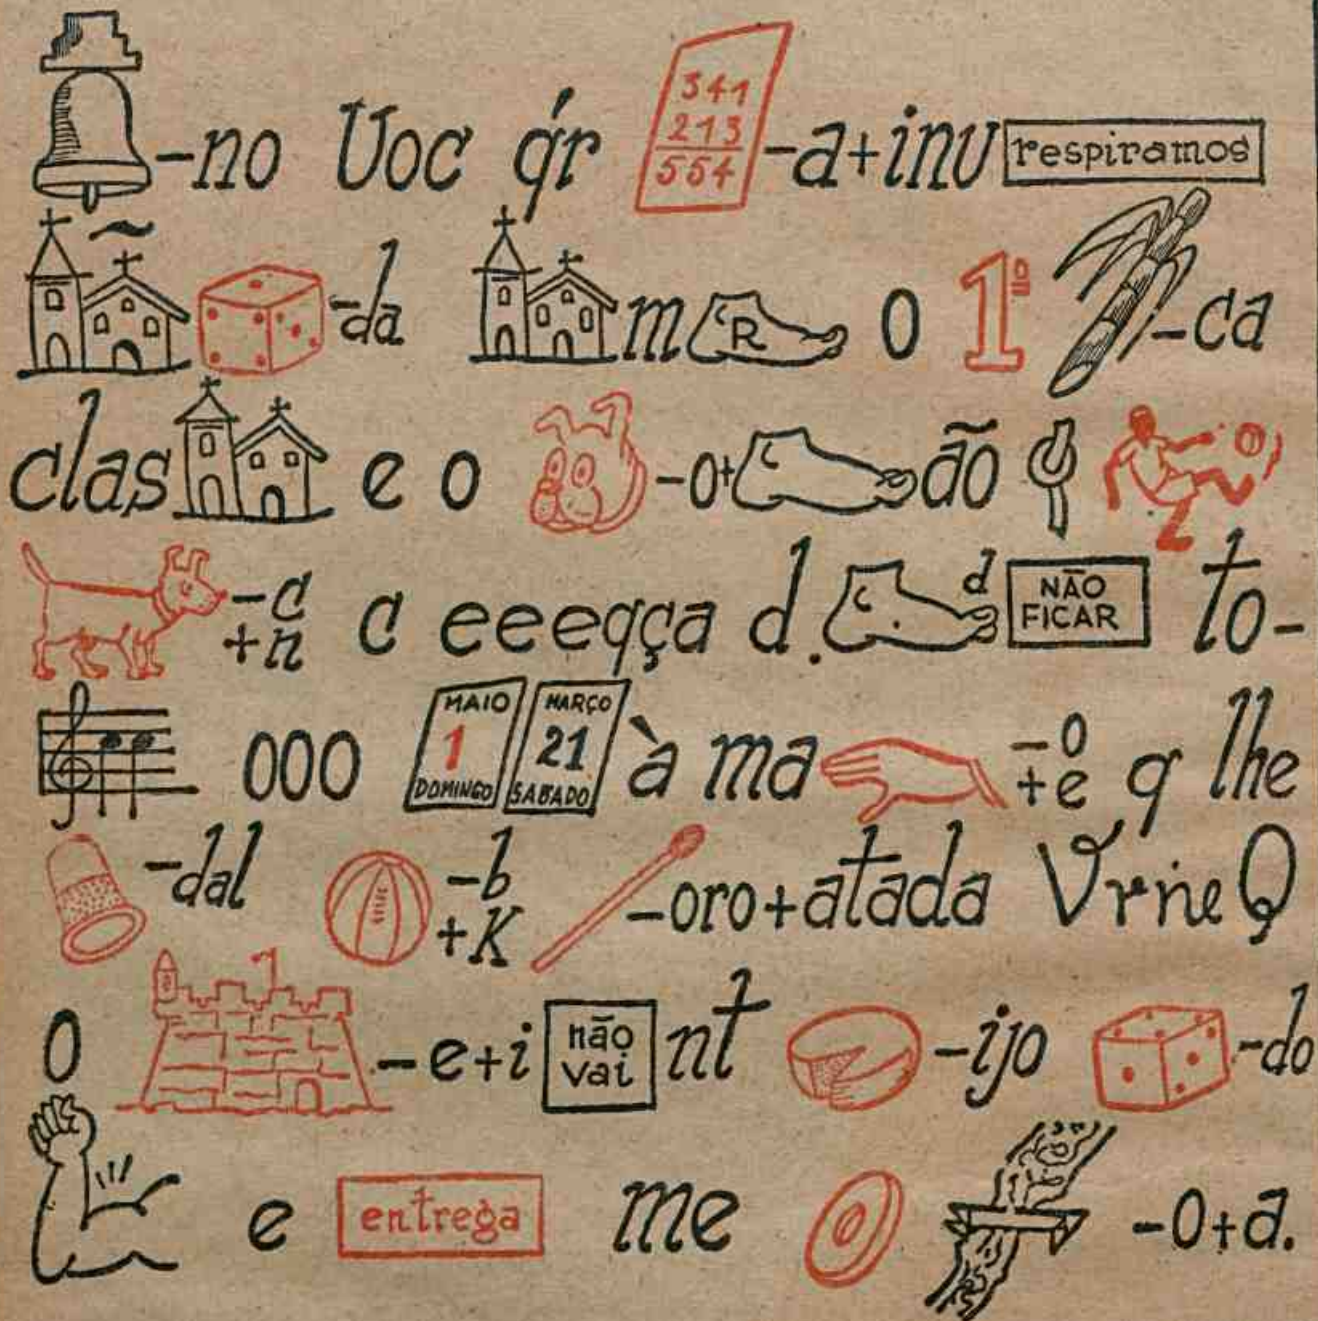 -no Uoc q́r 341 213 554 -a+inu respiramos
~ -da m R o 1º -ca
clas e o -o+ dão
-c +n c eeeqça d. d NÃO FICAR to-
ooo MAIO 1 DOMINGO MARÇO 21 SABADO à ma -o +e q lhe
-dal -b +K -oro+atada Vrne Q
O -e+i não vai nt -ijo -do
e entrega me -o+a.